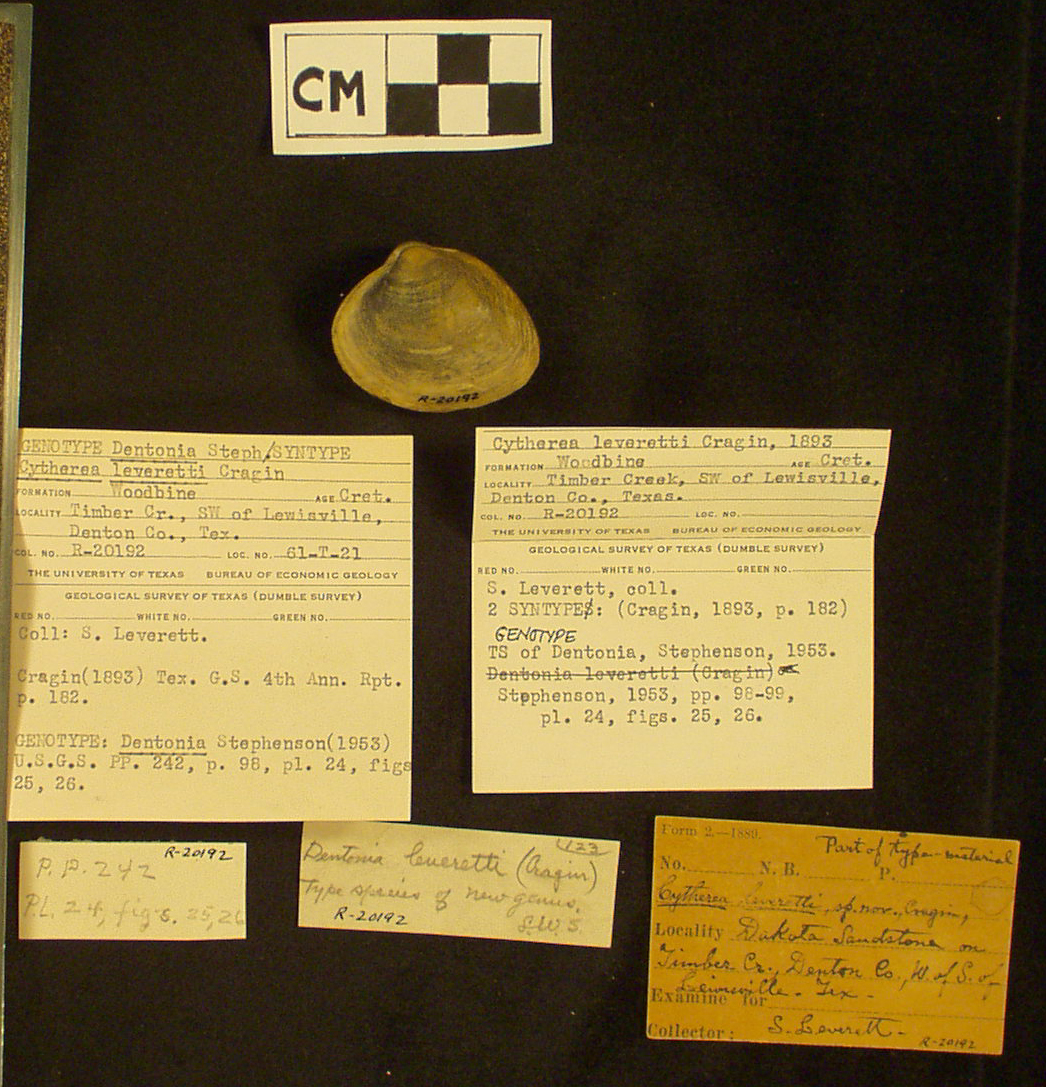 CM
R-20192
GENOTYPE Dentonia Steph/SYNTYPE
Cytherea leveretti Cragin
FORMATION Woodbine AGE Cret.
LOCALITY Timber Cr., SW of Lewisville,
Denton Co., Tex.
COL. NO. R-20192 LOC. NO. 61-T-21
THE UNIVERSITY OF TEXAS BUREAU OF ECONOMIC GEOLOGY
GEOLOGICAL SURVEY OF TEXAS (DUMBLE SURVEY)
RED NO. WHITE NO. GREEN NO.
Coll: S. Leverett.
Cragin(1893) Tex. G.S. 4th Ann. Rpt.
p. 182.
GENOTYPE: Dentonia Stephenson(1953)
U.S.G.S. PP. 242, p. 98, pl. 24, figs
25, 26.
Cytherea leveretti Cragin, 1893
FORMATION Woodbine AGE Cret.
LOCALITY Timber Creek, SW of Lewisville,
Denton Co., Texas.
COL. NO. R-20192 LOC. NO.
THE UNIVERSITY OF TEXAS BUREAU OF ECONOMIC GEOLOGY
GEOLOGICAL SURVEY OF TEXAS (DUMBLE SURVEY)
RED NO. WHITE NO. GREEN NO.
S. Leverett, coll.
2 SYNTYPES: (Cragin, 1893, p. 182)
GENOTYPE
TS of Dentonia, Stephenson, 1953.
Dentonia leveretti (Cragin)
Stephenson, 1953, pp. 98-99,
pl. 24, figs. 25, 26.
R-20192
P.P. 242
PL. 24, figs. 25, 26
123
Dentonia leveretti (Cragin)
Type species of new genus.
R-20192 L.W.S.
Form 2.—1889.
Part of type material
No. N. B. P.
Cytherea leveretti, sp. nov., Cragin,
Locality Dakota Sandstone on
Timber Cr., Denton Co., W. of S. of
Lewisville - Tex -
Examine for
Collector: S. Leverett -
R-20192